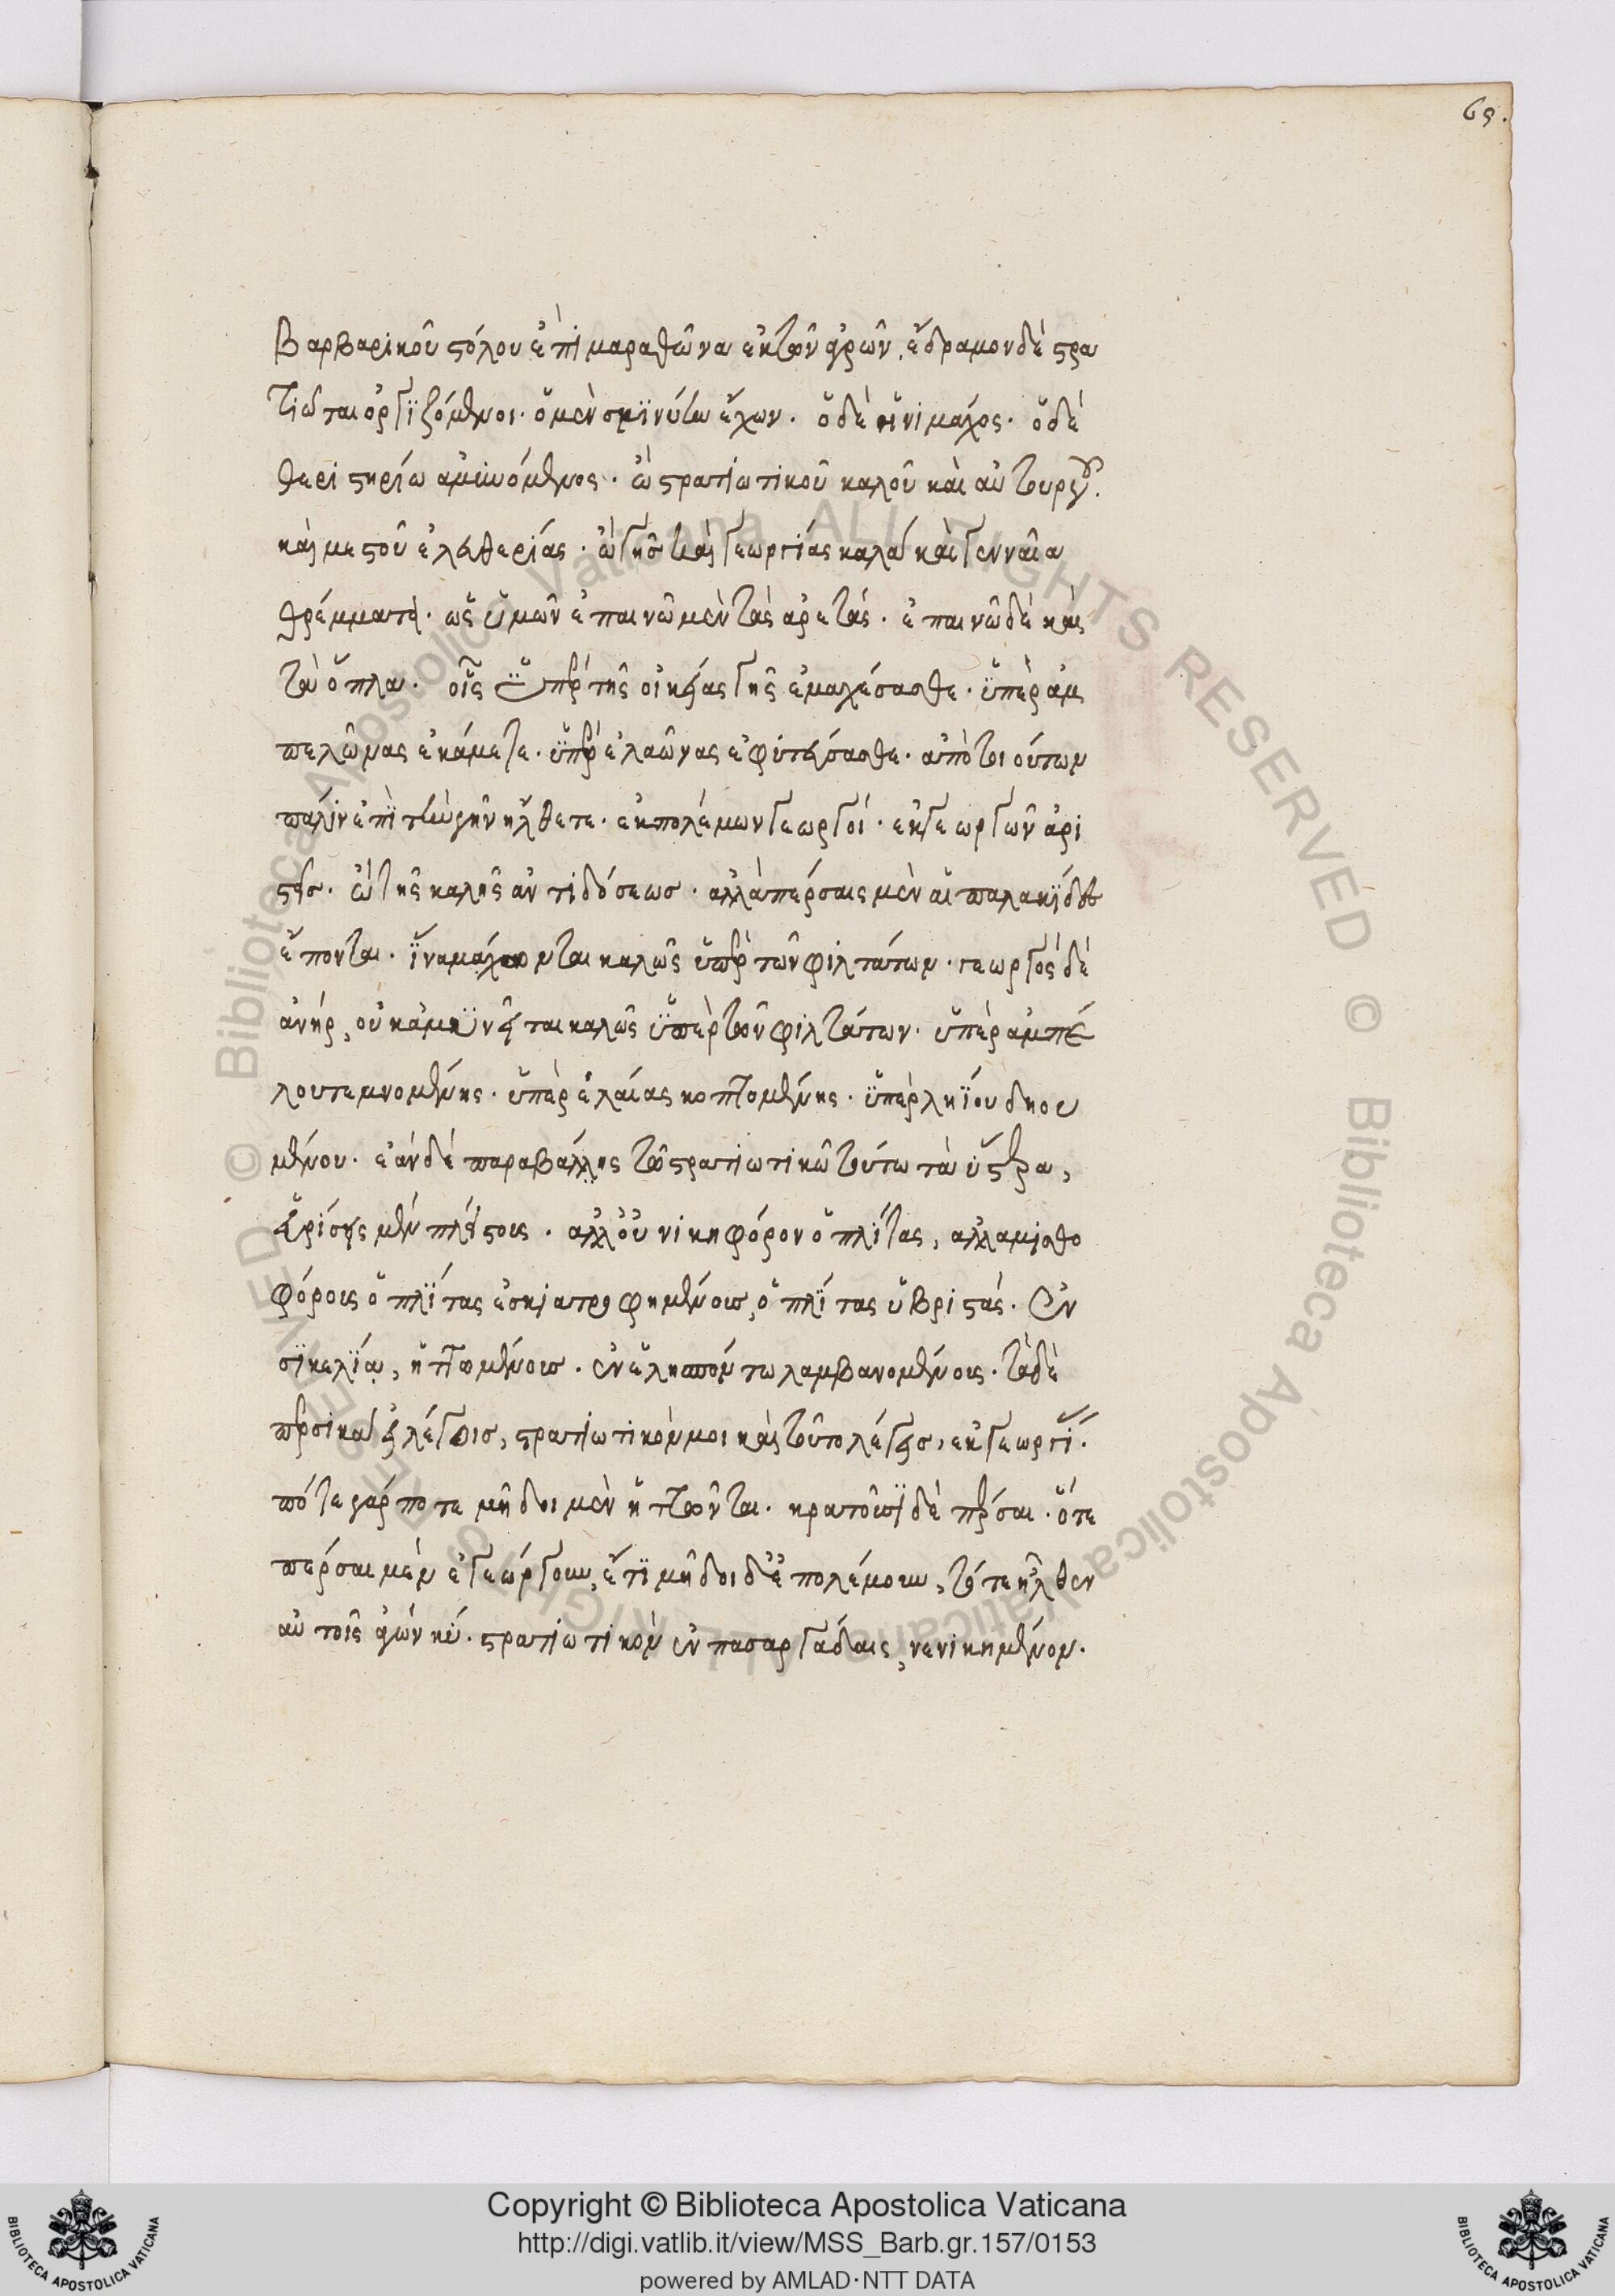 69.
Βαρβαρικοῦ στόλου ἐπὶ μαραθῶνα ἐκ τῶν ἀγρῶν, ἔδραμον δὲ στρα
τιῶται ὀργιζόμενοι. ὁ μὲν σμινύην ἔχων. ὁ δὲ ὕνι μάχος. ὁ δὲ
θεριστηρίω ἀμυνόμενος. ὦ στρατιωτικοῦ καλοῦ καὶ αὐτουργοῦ.
καὶ μεστοῦ ἐλευθερίας. ὦ γῆς καὶ γεωργίας καλὰ καὶ γενναῖα
θρέμματα. ὡς ὑμῶν ἐπαινῶ μὲν τὰς ἀρετάς. ἐπαινῶ δὲ καὶ
τὰ ὅπλα. οἷς ὑπὲρ τῆς οἰκείας γῆς ἐμαχέσασθε. ὑπὲρ ἀμ
πελῶνας ἐκάμετε. ὑπὲρ ἐλαῶνας ἐφυτεύσασθε. ἀπὸ τοιούτων
πάλιν ἐπὶ τὴν γῆν ἤλθετε. ἐκ πολέμων γεωργοί. ἐκ γεωργῶν ἀρι
στεῖς. ὦ τῆς καλῆς ἀντιδόσεως. ἀλλὰ πέρσαις μὲν αἱ παλακίδες
ἕπονται. ἵνα μάχωνται καλῶς ὑπὲρ τῶν φιλτάτων. γεωργὸς δὲ
ἀνήρ, οὐκ ἀμυνεῖται καλῶς ὑπὲρ τῶν φιλτάτων. ὑπὲρ ἀμπέ
λου τεμνομένης. ὑπὲρ ἐλαίας κοπτομένης. ὑπὲρ ληίου δηου
μένου. ἐὰν δὲ παραβάλλης τῶ στρατιωτικῶ τούτω τὰ ὕστερα,
εὑρήσεις μὲν πλείστους. ἀλλ' οὐ νικηφόρον ὁπλίτας, ἀλλὰ μισθο
φόρους ὁπλίτας ἐσκιατροφημένους, ὁπλίτας ὑβριστάς. ἐν
σικελία, ἡττωμένους. ἐν ἑλησπόντω λαμβανομένους. τὰ δὲ
περσικὰ εἰ λέγοις, στρατιωτικόν μοι καὶ τοῦτο λέγεις, ἐκ γεωργί.
πότε γάρ ποτε μῆδοι μὲν ἡττῶνται. κρατοῦσι δὲ πέρσαι. ὅτε
πέρσαι μὲν ἐγεώργουν, ἔτι μῆδοι δ' ἐπολέμουν, τότε ἦλθεν
αὐτοῖς ἀγὼν κύ. στρατιωτικὸν ἐν πασαργάδαις, νενικημένον.
Copyright © Biblioteca Apostolica Vaticana
http://digi.vatlib.it/view/MSS_Barb.gr.157/0153
powered by AMLAD·NTT DATA